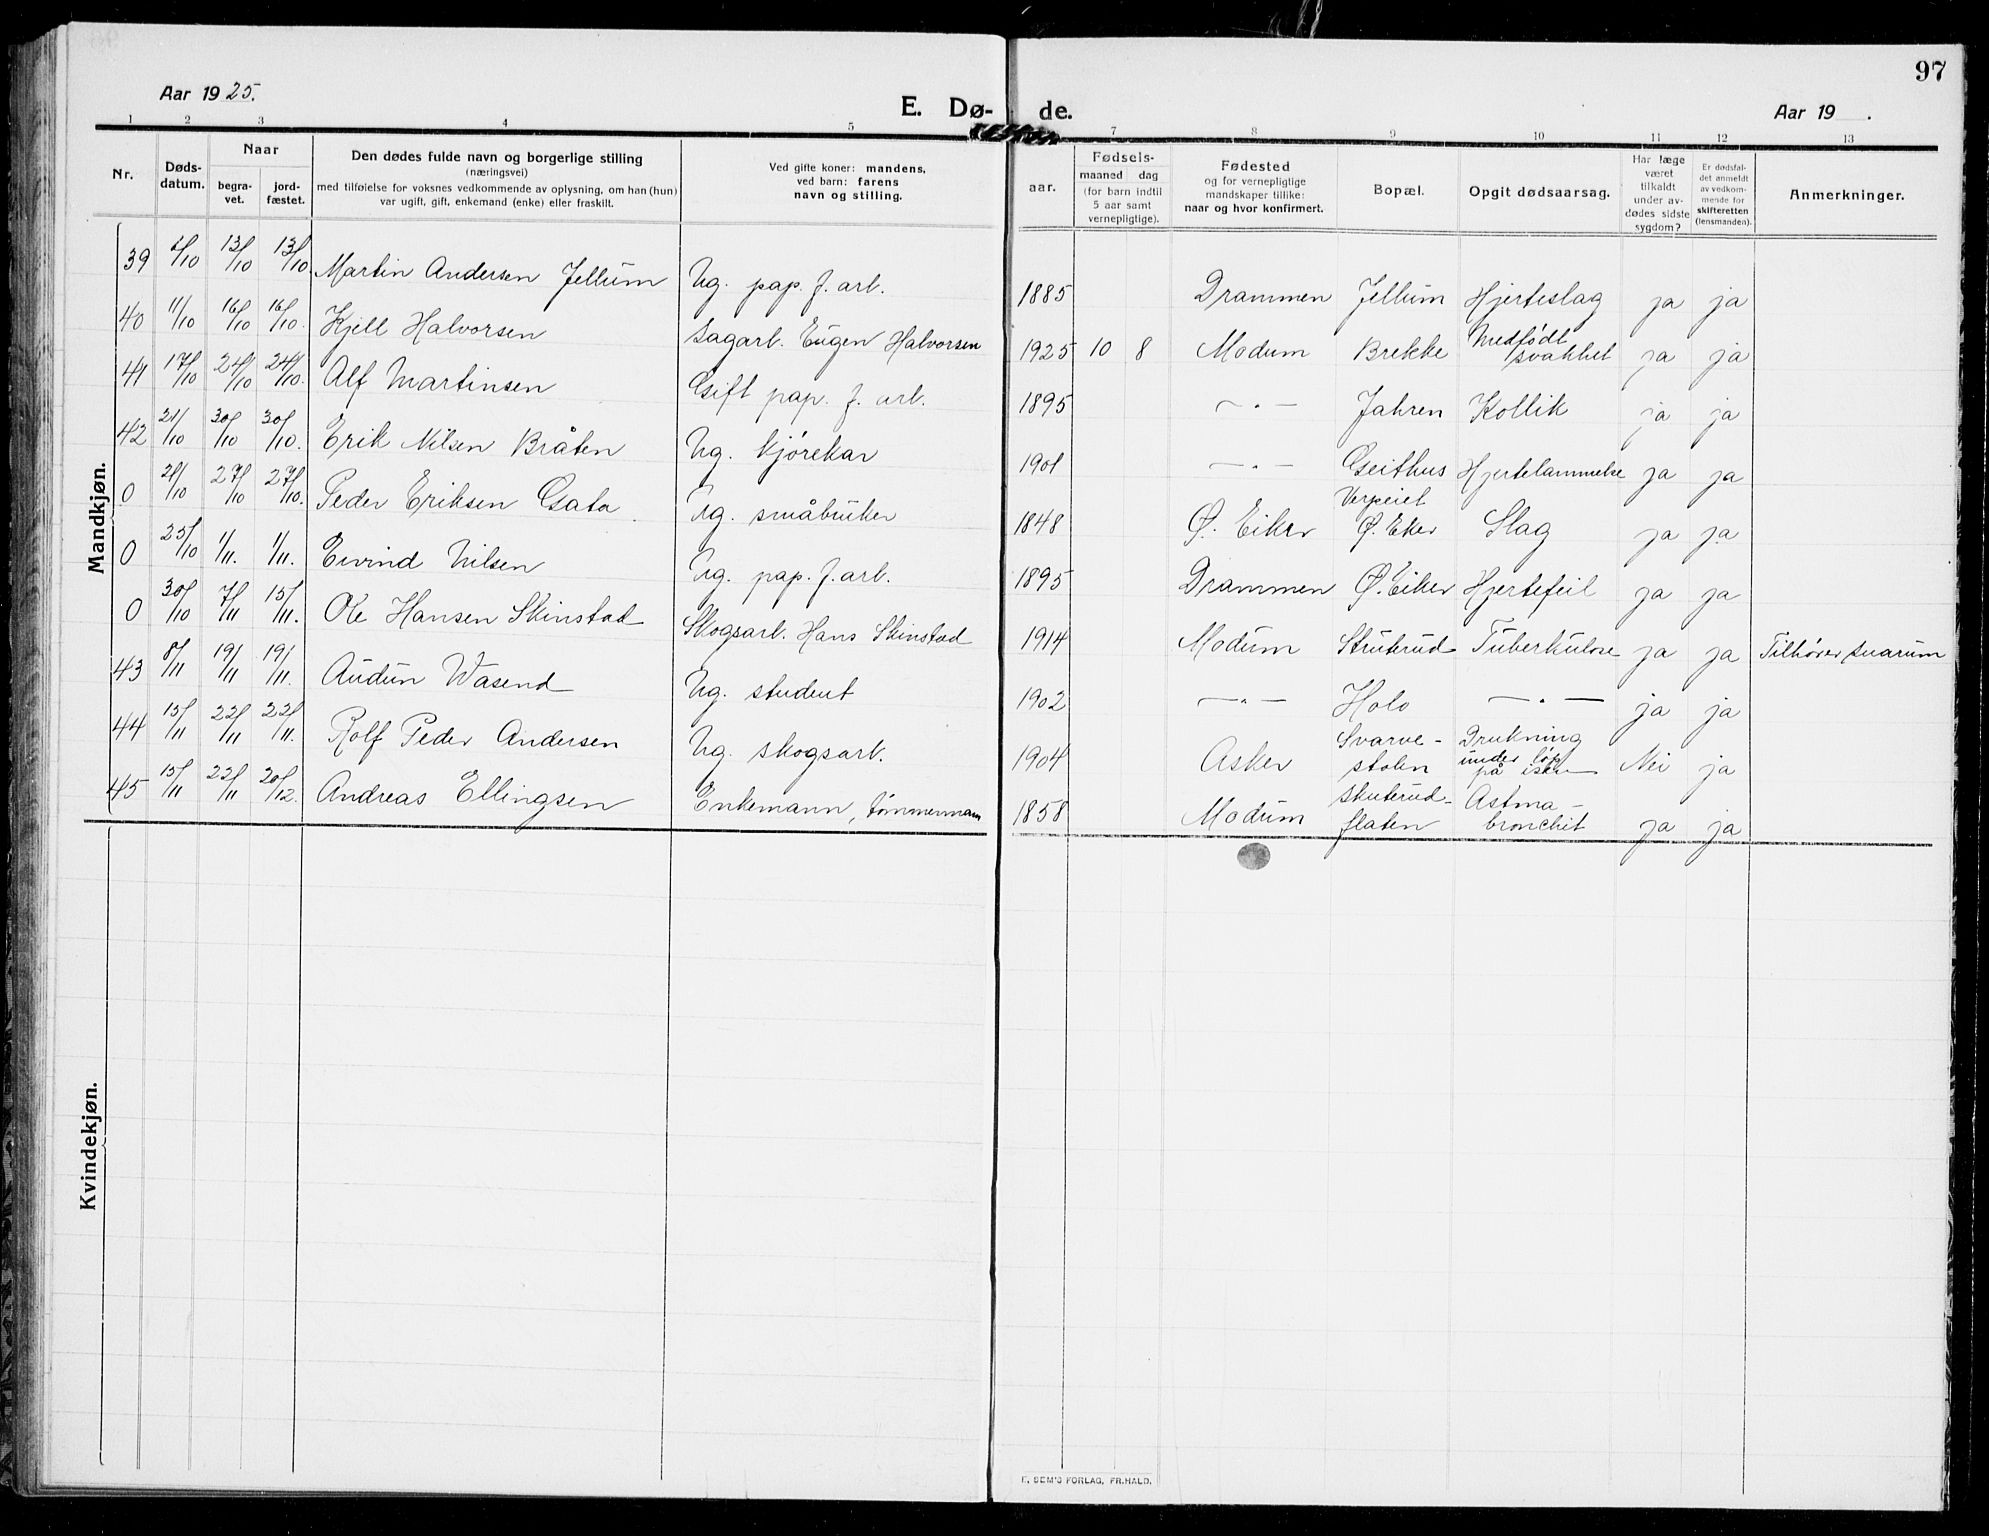 97
Aar 1925.
E. Dø-
de.
Aar 19 .
1 2 3 4 5 7 8 9 10 11 12 13
Nr.
Døds-
datum.
Naar
begra-
vet.
jord-
fæstet.
Den dødes fulde navn og borgerlige stilling
(næringsvei)
med tilføielse for voksnes vedkommende av oplysning, om han (hun)
var ugift, gift, enkemand (enke) eller fraskilt.
Ved gifte koner: mandens,
ved barn: farens
navn og stilling.
aar.
Fødsels-
maaned dag
(for barn indtil
5 aar samt
vernepligtige).
Fødested
og for vernepligtige
mandskaper tillike:
naar og hvor konfirmert.
Bopæl.
Opgit dødsaarsag.
Har læge
været
tilkaldt
under av-
dødes sidste
sygdom?
Er dødsfal-
det anmeldt
av vedkom-
mende for
skifteretten
(lensmanden).
Anmerkninger.
Mandkjøn.
39 6/10 13/10 13/10. Martin Andersen Jellum Ug. pap. f. arb. 1885 Drammen Jellum Hjerteslag ja ja
40 11/10 16/10 16/10. Kjell Halvorsen Sagarb. Eugen Halvorsen 1925 10 8 Modum Brekke Medfødt svakhet ja ja
41 17/10 24/10 24/10. Alf Martinsen Gift pap. f. arb. 1895 — " — Jahren Kollik ja ja
42 21/10 30/10 30/10. Erik Nilsen Bråten Ug. kjørekar 1901 — " — Geithus Hjertelammelse ja ja
0 21/10 27/10 27/10. Peder Eriksen Gata Ug. småbruker 1848 Ø. Eiker Verpeiet Ø. Eker Slag ja ja
0 25/10 1/11. 1/11. Eivind Nilsen Ug. pap. f. arb. 1895 Drammen Ø. Eiker Hjertefeil ja ja
0 30/10 7/11 15/11. Ole Hansen Skinstad Skogsarb. Hans Skinstad 1914 Modum Struterud Tuberkulose ja ja Tilhører Snarum
43 8/11 19/11 19/11. Audun Wasend Ug. student 1902 — " — Holo — " — ja ja
44 15/11 22/11 22/11. Rolf Peder Andersen Ug. skogsarb. 1904 Asker Svarve-stolen Drukning under løp på isen Nei ja
45 15/11 22/11 20/12. Andreas Ellingsen Enkemann, tømmermann 1858 Modum Skuterud-flaten Astma-bronchit ja ja
Kvindekjøn.
E. SEM'S FORLAG, FR.HALD.